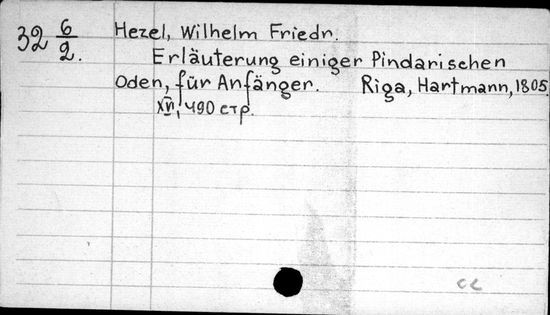 32 6/2. Hezel, Wilhelm Friedr.
Erläuterung einiger Pindarischen
Oden, für Anfänger. Riga, Hartmann, 1805.
490 стр.
cc